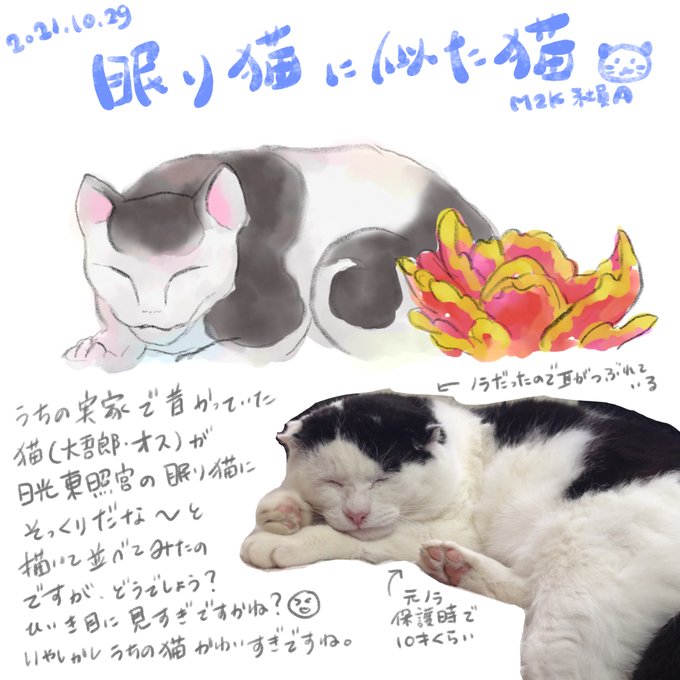 2021.10.29
眠り猫に似た猫
M2K 社員A
← ノラだったので耳がつぶれて
いる
うちの実家で昔かっていた
猫(大吾郎・オス)が
日光東照宮の眠り猫に
そっくりだな〜と
描いて並べてみたの
ですが、どうでしょう?
ひいき目に見すぎですかね?
いやしかしうちの猫かわいすぎですね。
元ノラ
保護時で
10才くらい